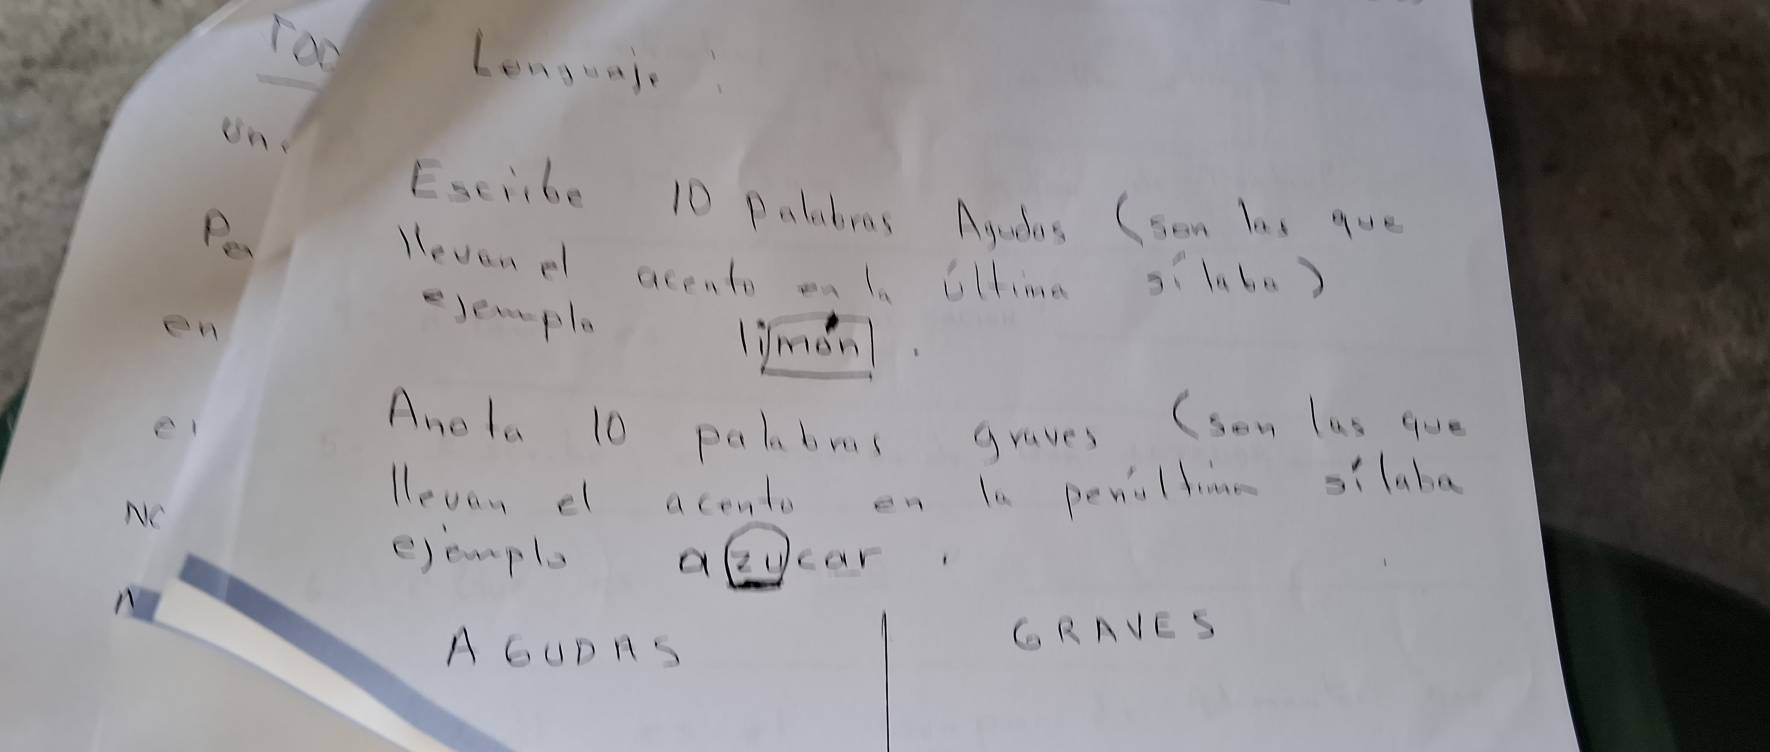 Lenguaje:
Escribe 10 palabras Agudas (son las que
llevan el acento en la última sílaba)
ejemplo limón.
Anota 10 palabras graves (son las que
llevan el acento en la penúltima sílaba
ejemplo azucar.
AGUDAS GRAVES
Un
Pa
en
el
NC